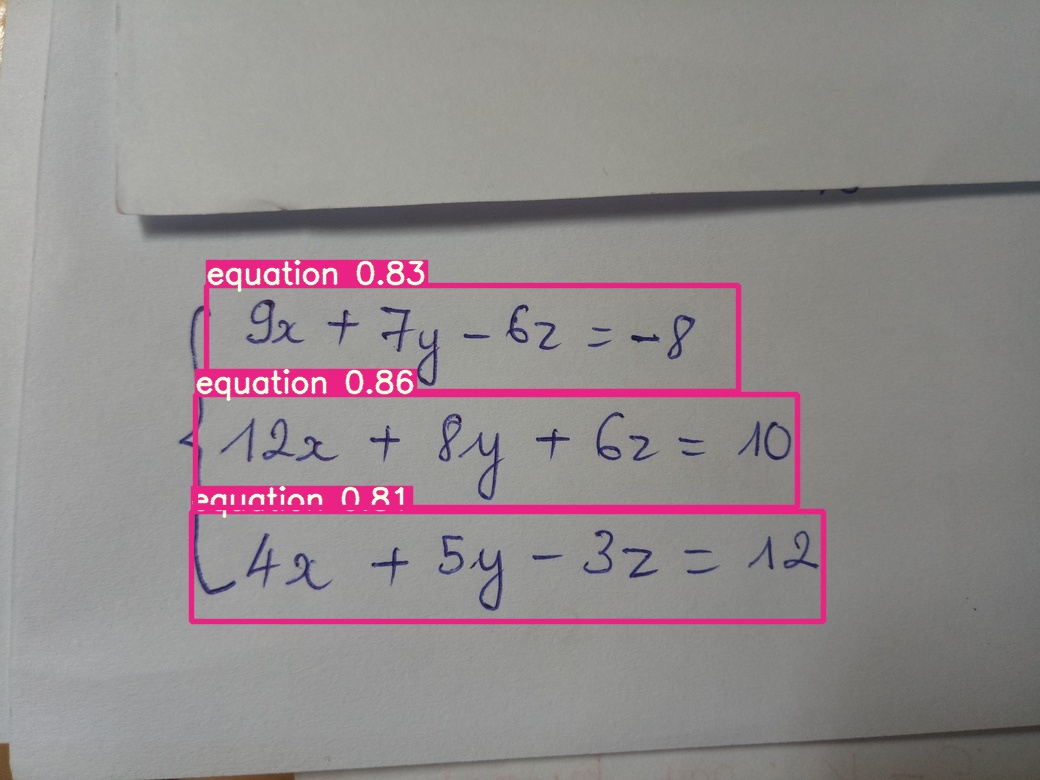 equation 0.83
9x + 7y - 6z = -8
equation 0.86
12x + 8y + 6z = 10
equation 0.81
4x + 5y - 3z = 12